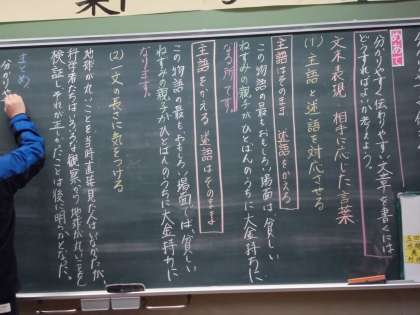 めあて
分かりやすく伝わりやすい文章を書くには
どうすればよいか考えよう。
文末表現 相手に応じた言葉
(1) 主語と述語を対応させる
主語はそのまま 述語をかえる
この物語の最もおもしろい場面は、貧しい
ねずみの親子がひとばんのうちに大金持ちに
なる所です。
主語をかえる 述語はそのまま
この物語の最もおもしろい場面では、貧しい
ねずみの親子がひとばんのうちに大金持ちに
なります。
(2) 一文の長さに気をつける
地球が丸いことを当時直接見た人はいなかったが
科学者たちはいろいろな観察から地球が丸いことを
検証し、それが正しかったことは後に明らかとなった。
まとめ
分かりや